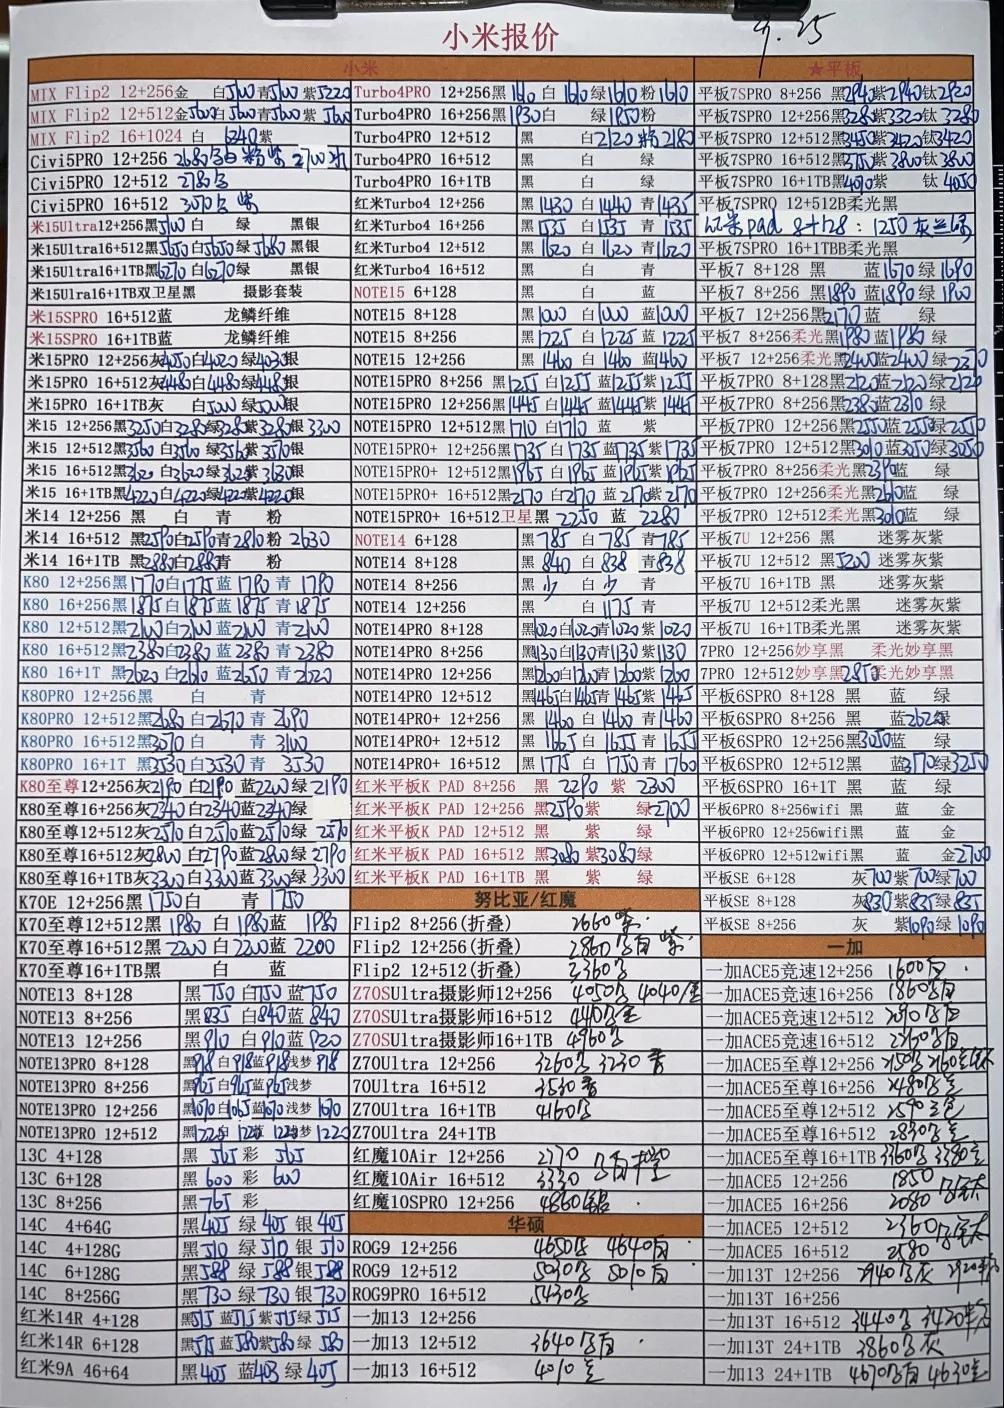 小米报价
9.25
小米
MIX Flip2 12+256金 白5100青5100紫5220
MIX Flip2 12+512金 白 青 紫
MIX Flip2 16+1024 白 6240紫
Civi5PRO 12+256 2680 白 粉 紫 2700
Civi5PRO 12+512 2780
Civi5PRO 16+512 3070 紫
米15Ultra12+256黑5100 白 绿 黑银
米15Ultra16+512黑5650白5650绿5680黑银
米15Ultra16+1TB黑6270白6270绿 黑银
米15Ulra16+1TB双卫星黑 摄影套装
米15SPRO 16+512蓝 龙鳞纤维
米15SPRO 16+1TB蓝 龙鳞纤维
米15PRO 12+256灰4050白4020绿4030银
米15PRO 16+512灰4480白4480绿4480银
米15PRO 16+1TB灰 白5000绿5000银
米15 12+256黑3250白3280绿3280紫3280银3300
米15 12+512黑3560白3560绿3560紫3570银
米15 16+512黑3620白3620绿3620紫3630银
米15 16+1TB黑4220白4220绿4220紫4220银
米14 12+256 黑 白 青 粉
米14 16+512 黑2590白2590青2810粉 2630
米14 16+1TB 黑2880白2885青 粉
K80 12+256黑1770白1775蓝1790青 1790
K80 16+256黑1875白1875蓝1875青1875
K80 12+512黑2100白2100蓝2100青2100
K80 16+512黑2380白2380蓝2380青2380
K80 16+1T 黑2620白2610蓝2650青2620
K80PRO 12+256黑 白 青
K80PRO 12+512黑2680白2670青2690
K80PRO 16+512黑3070白 青3100
K80PRO 16+1T 黑3530白3530青 3530
K80至尊12+256灰2190白2190蓝2200绿2190
K80至尊16+256灰2340白2340蓝2340绿
K80至尊12+512灰2570白2570蓝2570绿2570
K80至尊16+512灰2800白2790蓝2800绿2790
K80至尊16+1TB灰3300白3300蓝3300绿3300
K70E 12+256黑1750白 青1750
K70至尊12+512黑1980白1980蓝 1980
K70至尊16+512黑2200白2200蓝 2200
K70至尊16+1TB黑 白 蓝
NOTE13 8+128 黑750白750蓝750
NOTE13 8+256 黑835白840蓝840
NOTE13 12+256 黑910白910蓝920
NOTE13PRO 8+128 黑918白918蓝918浅梦918
NOTE13PRO 8+256 黑965白965蓝965浅梦
NOTE13PRO 12+256 黑1070白1065蓝1070浅梦1070
NOTE13PRO 12+512 黑1220白1220蓝1220浅梦1220
13C 4+128 黑 565彩 565
13C 6+128 黑 600彩 600
13C 8+256 黑 765彩
14C 4+64G 黑405绿405银405
14C 4+128G 黑510绿510银510
14C 6+128G 黑588绿588银588
14C 8+256G 黑730绿730银730
红米14R 4+128 黑515蓝515紫515绿515
红米14R 6+128 黑 蓝580紫580绿580
红米9A 46+64 黑405蓝403绿405
Turbo4PRO 12+256黑1610白1610绿1610粉1610
Turbo4PRO 16+256黑1930白 绿1950粉
Turbo4PRO 12+512 黑 白2120粉2180
Turbo4PRO 16+512 黑 白 绿
Turbo4PRO 16+1TB 黑 白 绿
红米Turbo4 12+256 黑1430白1440青1435
红米Turbo4 16+256 黑1535白1535青1535
红米Turbo4 12+512 黑1620白1620青1620
红米Turbo4 16+512 黑 白 青
NOTE15 6+128 黑 白 蓝
NOTE15 8+128 黑1000白1000蓝1000
NOTE15 8+256 黑1225白1225蓝1225
NOTE15 12+256 黑1460白1460蓝1460
NOTE15PRO 8+256 黑1255白1255蓝1255紫1255
NOTE15PRO 12+256黑1445白1445蓝1445紫1445
NOTE15PRO 12+512黑1710白1710蓝 紫
NOTE15PRO+ 12+256黑1735白1735蓝1735紫1735
NOTE15PRO+ 12+512黑1965白1965蓝1965紫1965
NOTE15PRO+ 16+512黑2170白2170蓝2170紫2170
NOTE15PRO+ 16+512卫星黑 2250 蓝 2280
NOTE14 6+128 黑785白785青785
NOTE14 8+128 黑840白838青838
NOTE14 8+256 黑少 白少 青
NOTE14 12+256 黑 白1175青
NOTE14PRO 8+128 黑1020白1020青1020紫1020
NOTE14PRO 8+256 黑1130白1130青1130紫1130
NOTE14PRO 12+256 黑1200白1200青1200紫1200
NOTE14PRO 12+512 黑1465白1465青1465紫1465
NOTE14PRO+ 12+256 黑1460白1460青1460
NOTE14PRO+ 12+512 黑1665白1655青1655
NOTE14PRO+ 16+512 黑1775白1750青1760
红米平板K PAD 8+256 黑 2290 紫 2300
红米平板K PAD 12+256 黑2590紫 绿2700
红米平板K PAD 12+512 黑 紫 绿
红米平板K PAD 16+512 黑3080紫3080绿
红米平板K PAD 16+1TB 黑 紫 绿
努比亚/红魔
Flip2 8+256(折叠) 2660 紫
Flip2 12+256(折叠) 2860 白 紫
Flip2 12+512(折叠) 2360
Z70SUltra摄影师12+256 4050 4040
Z70SUltra摄影师16+512 4410
Z70SUltra摄影师16+1TB 4960
Z70Ultra 12+256 3260 3230 黄
70Ultra 16+512 3530 黄
Z70Ultra 16+1TB 4160
Z70Ultra 24+1TB
红魔10Air 12+256 2770
红魔10Air 16+512 3330
红魔10SPRO 12+256 4860银
华硕
ROG9 12+256 4650 4640白
ROG9 12+512 5090 5010白
ROG9PRO 16+512 5430
一加13 12+256
一加13 12+512 3640
一加13 16+512 4010
★平板
平板7SPRO 8+256 黑2940紫2940钛2920
平板7SPRO 12+256黑3280紫3320钛3280
平板7SPRO 12+512黑3450紫3420钛3420
平板7SPRO 16+512黑3750紫3800钛3800
平板7SPRO 16+1TB黑4090紫 钛4050
平板7SPRO 12+512B柔光黑
红米pad 8+128：1250 灰兰绿
平板7SPRO 16+1TBB柔光黑
平板7 8+128 黑 蓝1670绿1690
平板7 8+256 黑1890蓝1890绿1900
平板7 12+256黑2170蓝 绿
平板7 8+256柔光黑1980蓝1980绿
平板7 12+256柔光黑2400蓝2400绿2370
平板7PRO 8+128黑2120蓝2120绿2120
平板7PRO 8+256黑2380蓝2310绿
平板7PRO 12+256黑2550蓝2550绿2550
平板7PRO 12+512黑3010蓝3050绿3050
平板7PRO 8+256柔光黑2390蓝 绿
平板7PRO 12+256柔光黑2610蓝 绿
平板7PRO 12+512柔光黑3010蓝 绿
平板7U 12+256 黑 迷雾灰紫
平板7U 12+512 黑5200迷雾灰紫
平板7U 16+1TB 黑 迷雾灰紫
平板7U 12+512柔光黑 迷雾灰紫
平板7U 16+1TB柔光黑 迷雾灰紫
7PRO 12+256妙享黑 柔光妙享黑
7PRO 12+512妙享黑2850柔光妙享黑
平板6SPRO 8+128 黑 蓝 绿
平板6SPRO 8+256 黑 蓝2620绿
平板6SPRO 12+256黑3050蓝 绿
平板6SPRO 12+512黑 蓝3170绿3250
平板6SPRO 16+1T 黑 蓝 绿
平板6PRO 8+256wifi 黑 蓝 金
平板6PRO 12+256wifi黑 蓝 金
平板6PRO 12+512wifi黑 蓝 金2700
平板SE 6+128 灰700紫700绿700
平板SE 8+128 灰830紫835绿835
平板SE 8+256 灰 紫1090绿1090
一加
一加ACE5竞速12+256 1600白
一加ACE5竞速16+256 1860白
一加ACE5竞速12+512 2090白
一加ACE5竞速16+512 2360白
一加ACE5至尊12+256 2150 2160
一加ACE5至尊16+256 2480
一加ACE5至尊12+512 2590
一加ACE5至尊16+512 2830
一加ACE5至尊16+1TB 3360 3380
一加ACE5 12+256 1850
一加ACE5 16+256 2080
一加ACE5 12+512 2360
一加ACE5 16+512 2580
一加13T 12+256 2940 灰 2920粉
一加13T 16+256
一加13T 16+512 3440 3420粉
一加13T 24+1TB 3860 灰
一加13 24+1TB 4670 白 4630